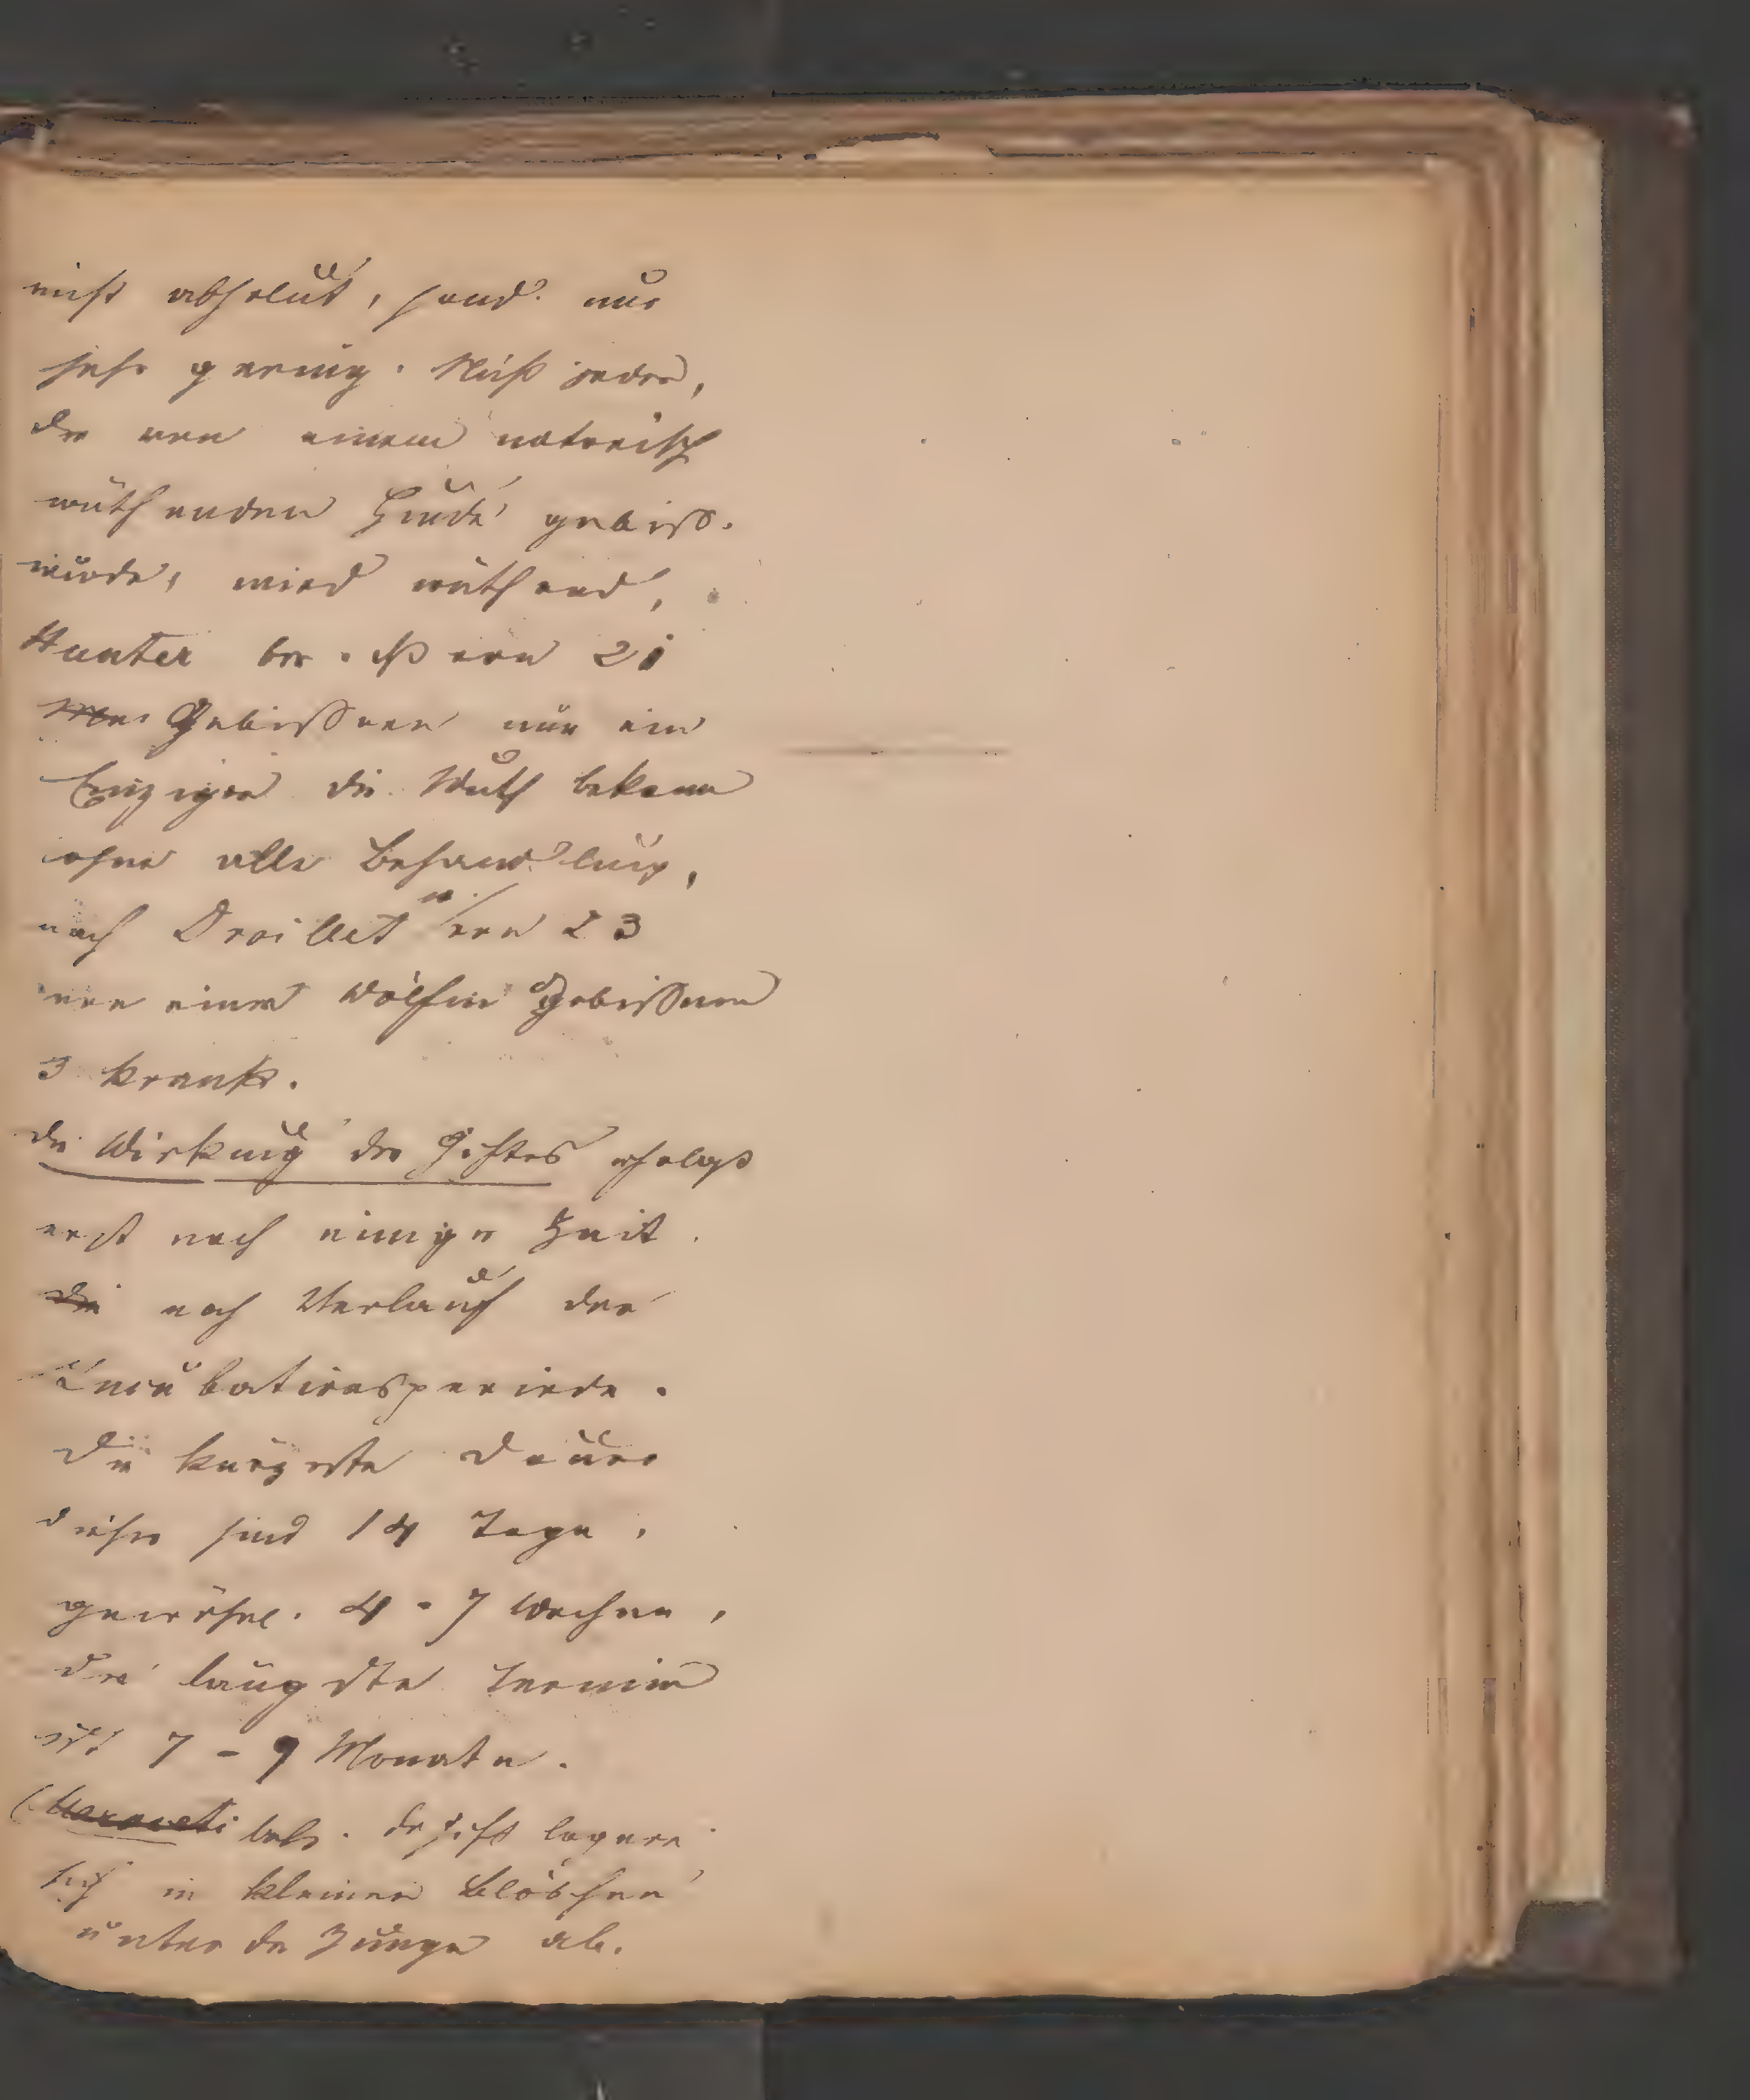 nicht absolut, sond. nur
sehr gering. Nicht jeder,
der von einem notorisch
wüthenden Hunde gebiss.
wurde, wird wüthend,
Hunter von 21
Gebissenen nur ein
Einziger die Wuth bekam
ohne alle Behandlung,
nach von 23
von einer Wölfin Gebissenen
3 krank.
Die Wirkung des Giftes erfolgt
erst nach einiger Zeit.
die nach Verlauf der
Incubationsperiode.
Die kürzeste Dauer
dieser sind 14 Tage,
gewöhnl. 4 - 7 Wochen,
der längste Termin
ist 7 - 9 Monate.
(Marochetti das Gift lagere
sich in kleinen Bläschen
unter der Zunge ab.